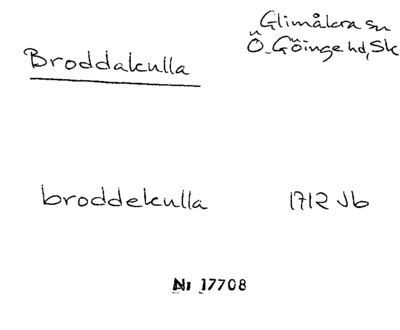 Glimåkra sn
Ö. Göinge hd, Sk
Broddakulla
broddekulla 1712 Jb
Nr 17708